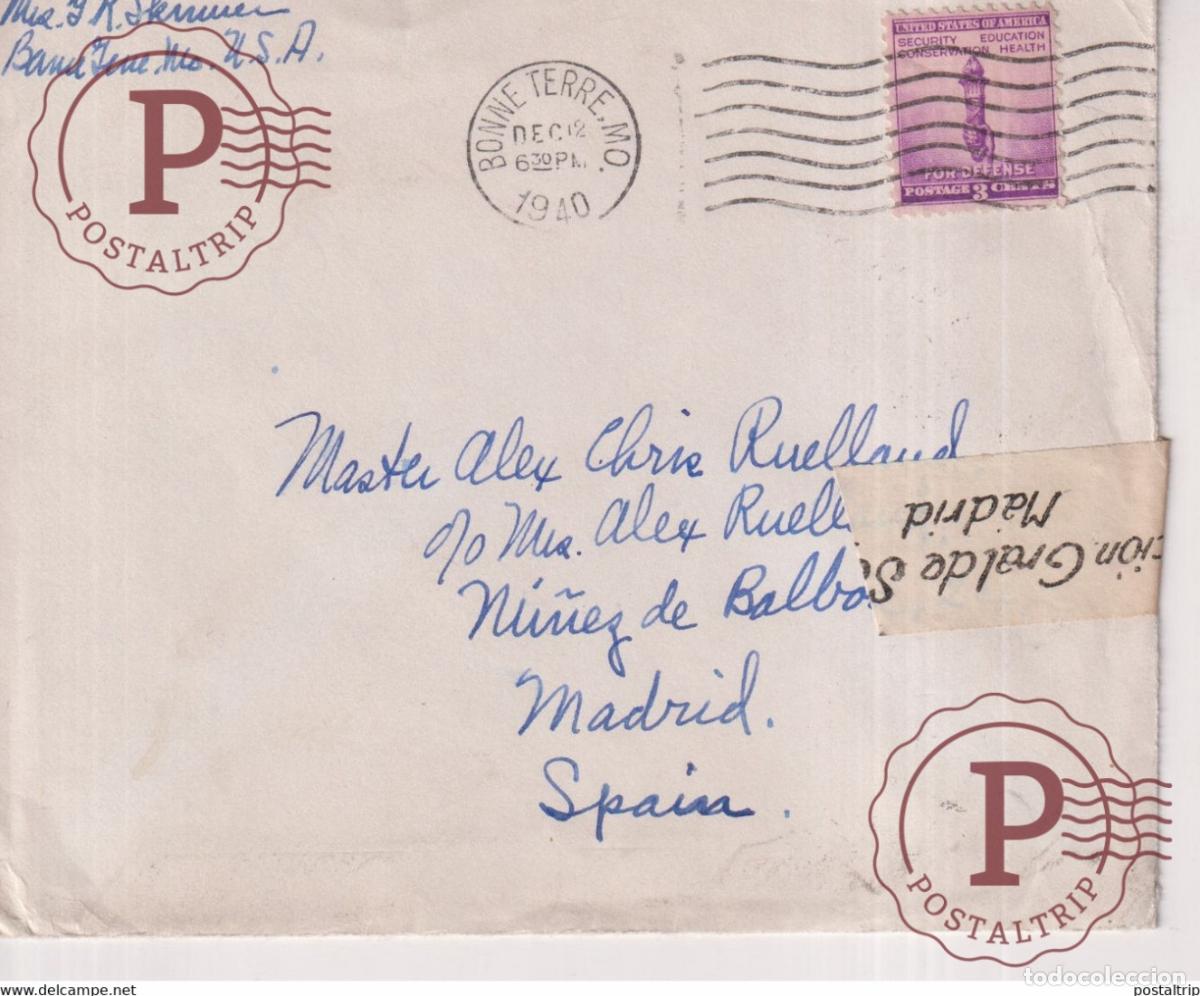 Mrs. F. R. Skinner
Bonne Terre, Mo. U.S.A.
P
POSTALTRIP
BONNE TERRE, MO.
DEC 12
6 30 PM
1940
UNITED STATES OF AMERICA
SECURITY EDUCATION
CONSERVATION HEALTH
FOR DEFENSE
POSTAGE 3 CENTS
Master Alex Chris Ruelland
c/o Mrs. Alex Ruell
Núñez de Balbo
Madrid.
Spain.
ción Gral de Se
Madrid
P
POSTALTRIP
todocoleccion
www.delcampe.net
postaltrip